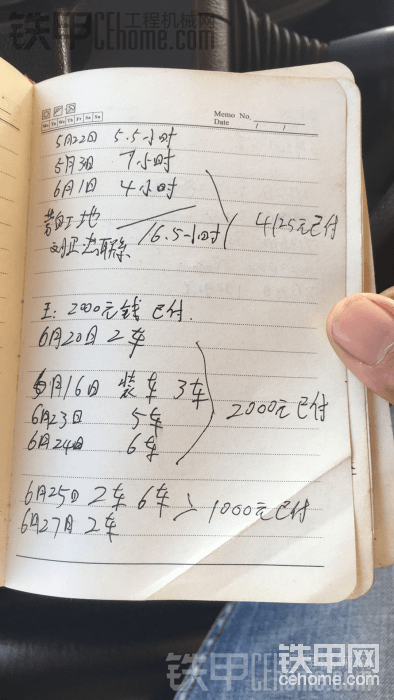 铁甲 工程机械网
CEhome.com
Memo No.
Mo Tu We Th Fr Sa Su
Date / /
5月22日 5.5小时
5月3日 7小时
6月1日 4小时
4125元已付
工地
16.5小时
王: 2000元钱 已付.
6月20日 2车
6月16日 装车 3车
6月23日 5车
6月24日 6车
2000元已付
6月25日 2车 6车
6月27日 2车
1000元已付
铁甲
铁甲CEhome
cehome.com